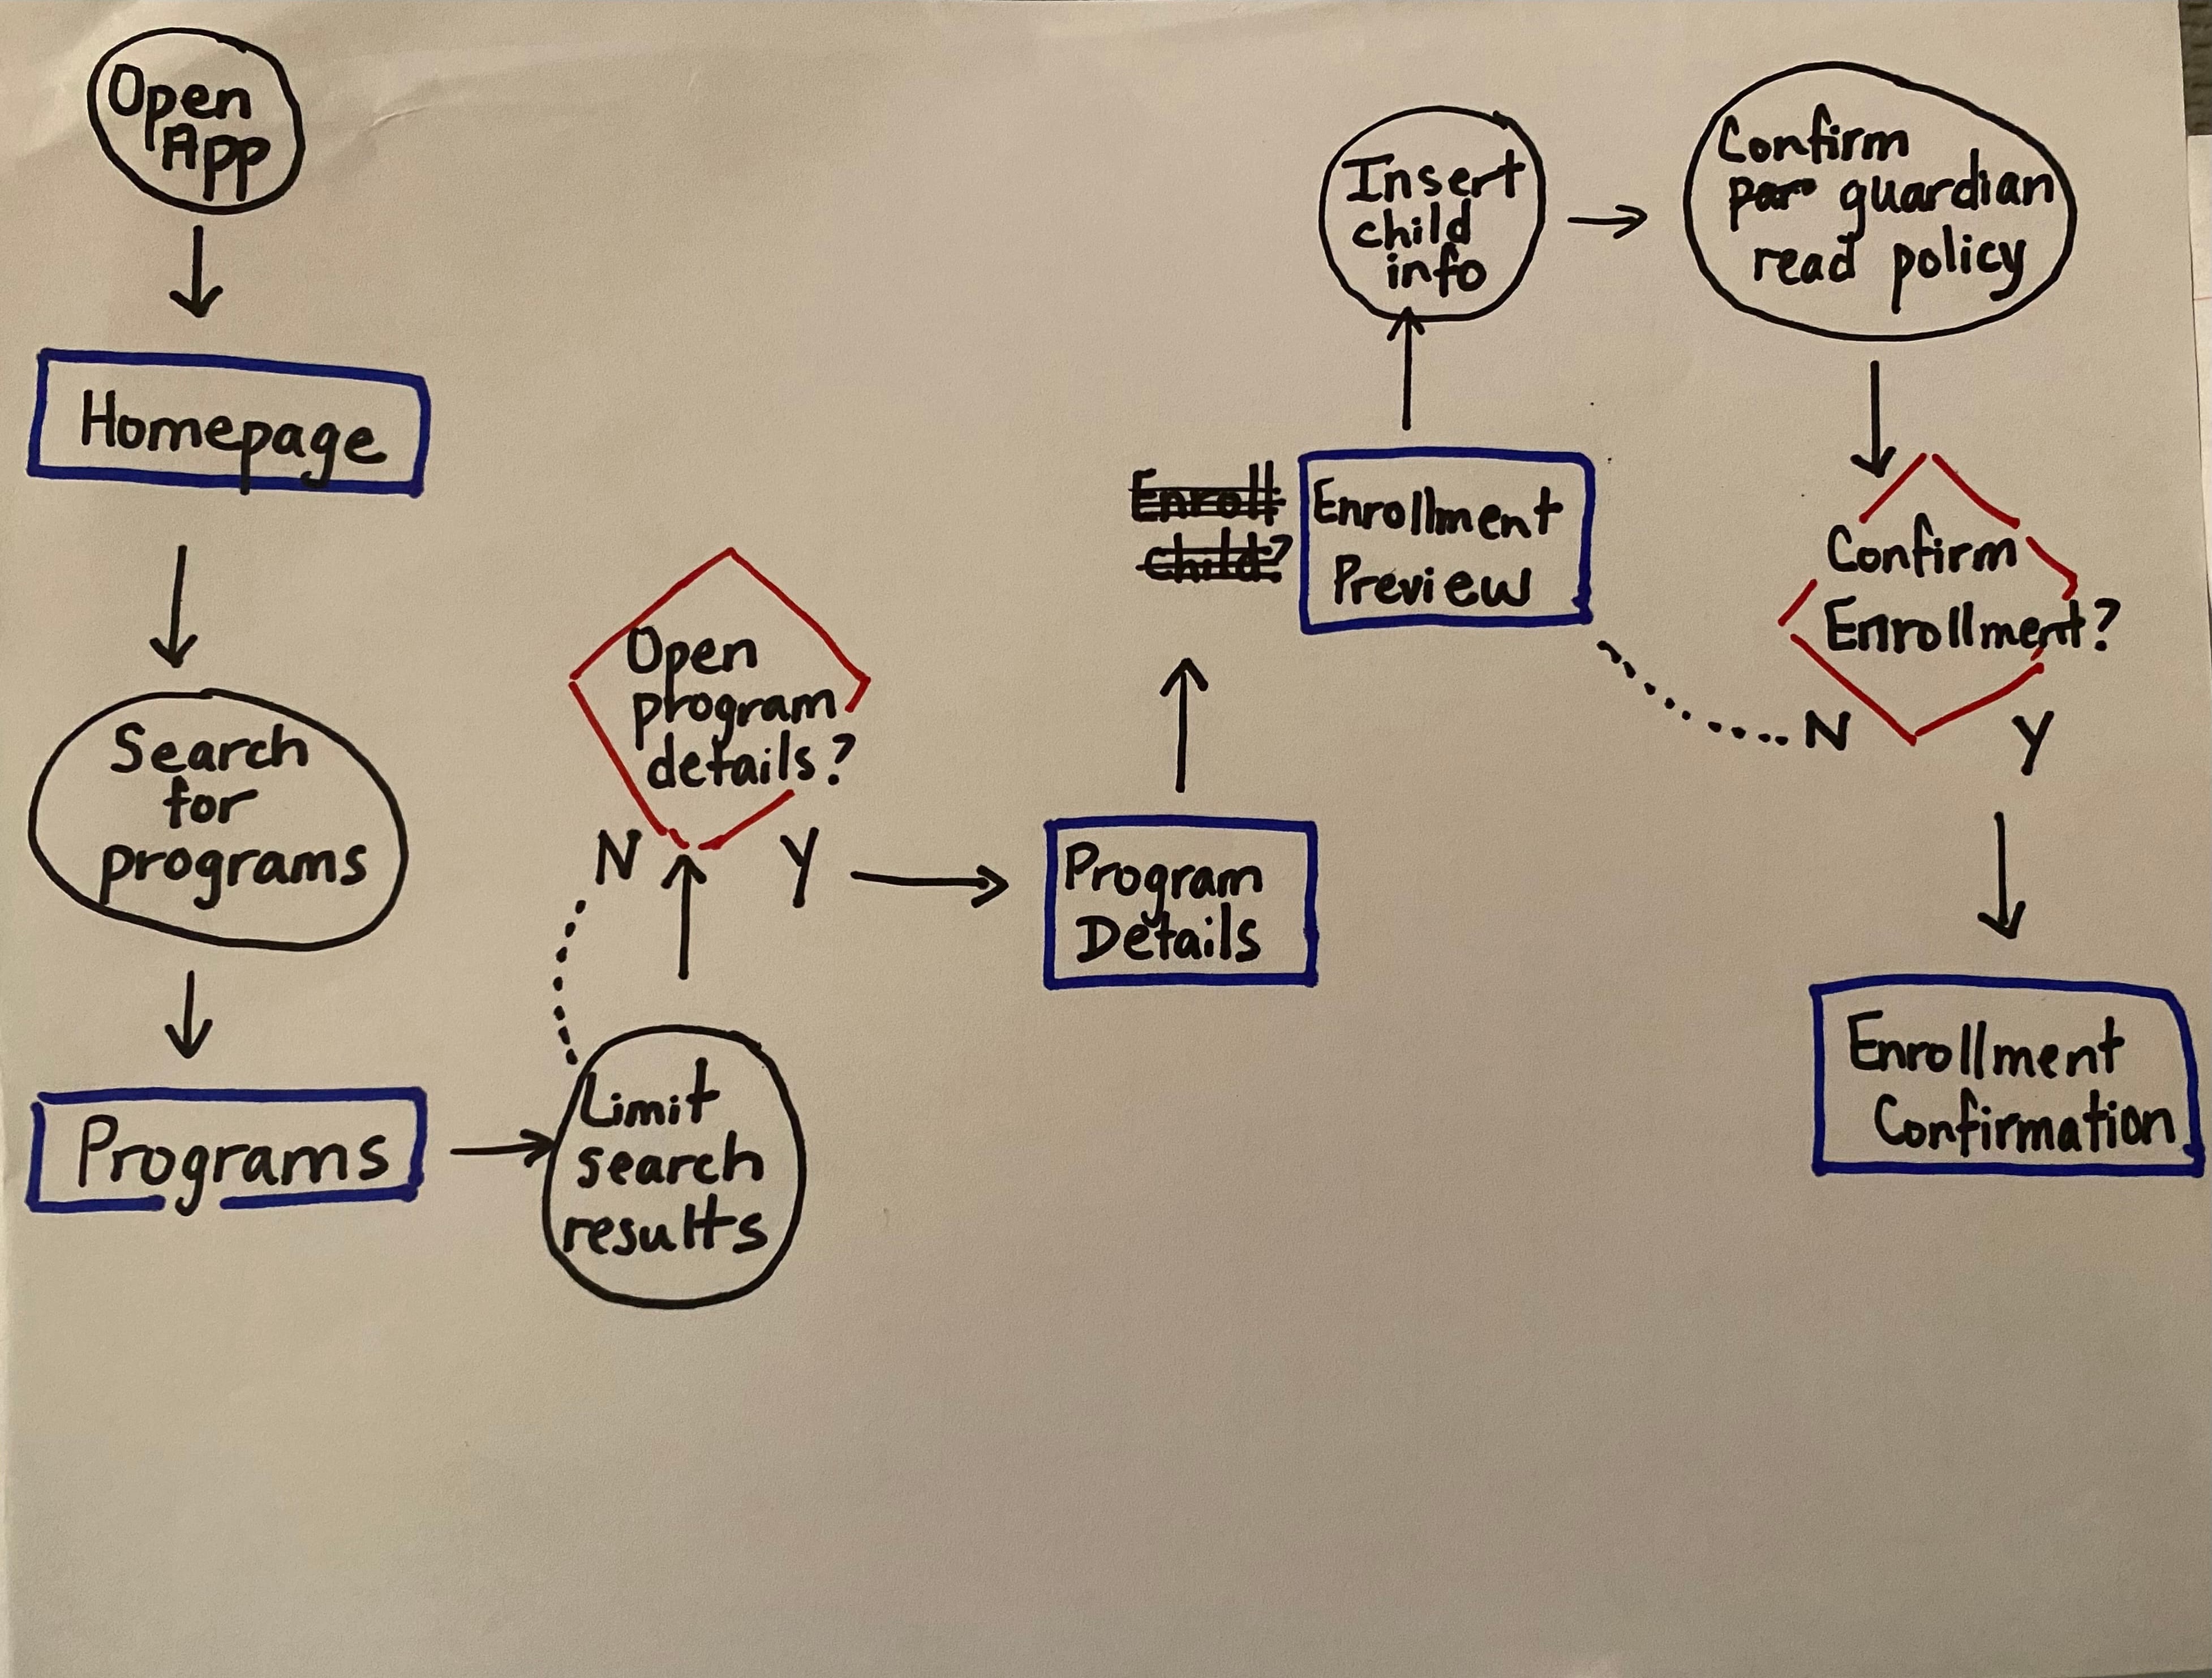 Open
App
Homepage
Search
for
programs
Programs
Limit
search
results
Open
program
details?
N
Y
Program
Details
Enroll
child?
Enrollment
Preview
Insert
child
info
Confirm
par guardian
read policy
Confirm
Enrollment?
N
Y
Enrollment
Confirmation